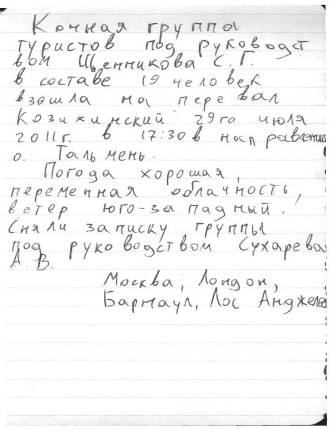 Конная группа
туристов под руководст
вом Щенникова С. Г.
в составе 19 человек
взошла на перевал
Козихинский 29го июля
2011г. в 17:30 в направлении
о. Тальмень.
Погода хорошая,
переменная облачность,
ветер юго-западный.
Сняли записку группы
под руководством Сухарева
А. В.
Москва, Лондон,
Барнаул, Лос Анджелес